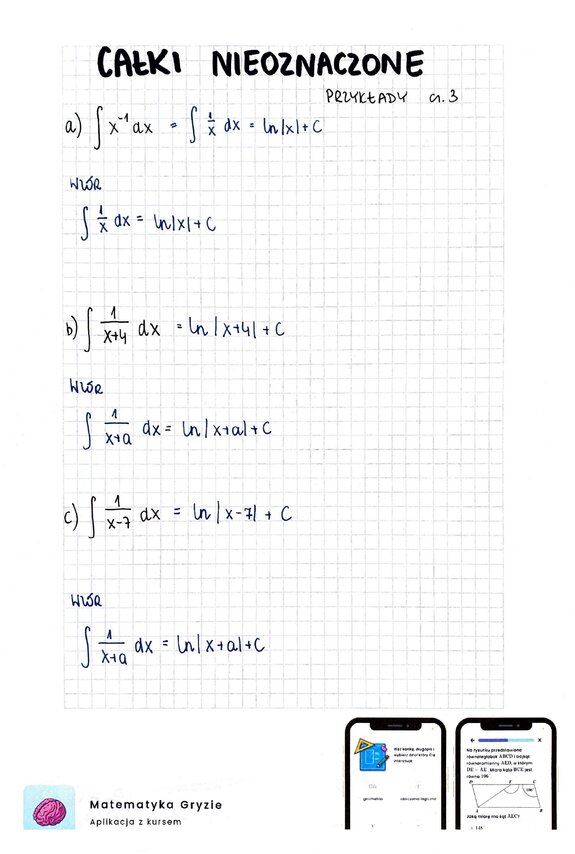 CAŁKI NIEOZNACZONE
PRZYKŁADY cz. 3
a) ∫ x⁻¹ dx = ∫ 1/x dx = ln|x| + C
WZÓR
∫ 1/x dx = ln|x| + C
b) ∫ 1/(x+4) dx = ln|x+4| + C
WZÓR
∫ 1/(x+a) dx = ln|x+a| + C
c) ∫ 1/(x-7) dx = ln|x-7| + C
WZÓR
∫ 1/(x+a) dx = ln|x+a| + C
Matematyka Gryzie
Aplikacja z kursem
wybierz dział który Cię
interesuje
geometria
Na rysunku przedstawiono
równoległobok ABCD i trójkąt
równoramienny AED, w którym
DE = AE. Miara kąta BCE jest
równa 106
D E C
106°
A B
Jaką miarę ma kąt AEC?
148